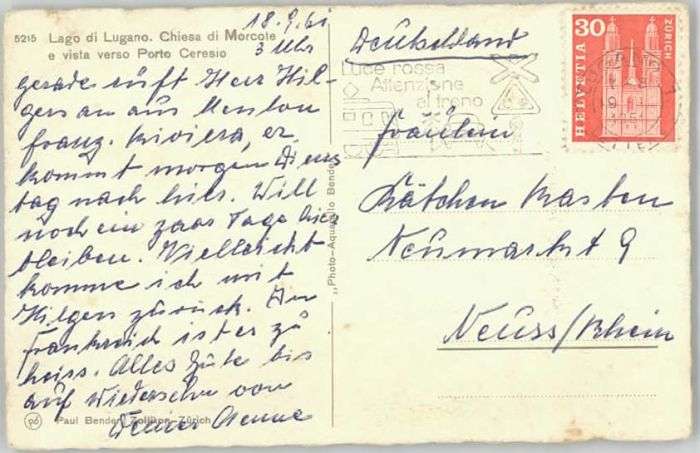 18.9.61
3 Uhr
5215 Lago di Lugano. Chiesa di Morcote
e vista verso Porto Ceresio
gerade rüft Herr Hil-
gers an aus Menton
franz. Riviera, er
kommt morgen Diens
tag nach hier. Will
noch ein paar Tage hier
bleiben. Vielleicht
komme ich mit
Hilgers zürück. In
Frankreich ist er zü
heiss. Alles Güte bis
auf Wiedersehn von
Deiner
Paul Bender, Zollikon-Zürich
"Photo-Aquarello Bender
Deutschland
Luce rossa
Attenzione
al treno
30
HELVETIA
ZÜRICH
Fräulein
Kätchen Kasten
Neumarkt 9
Neuss/Rhein